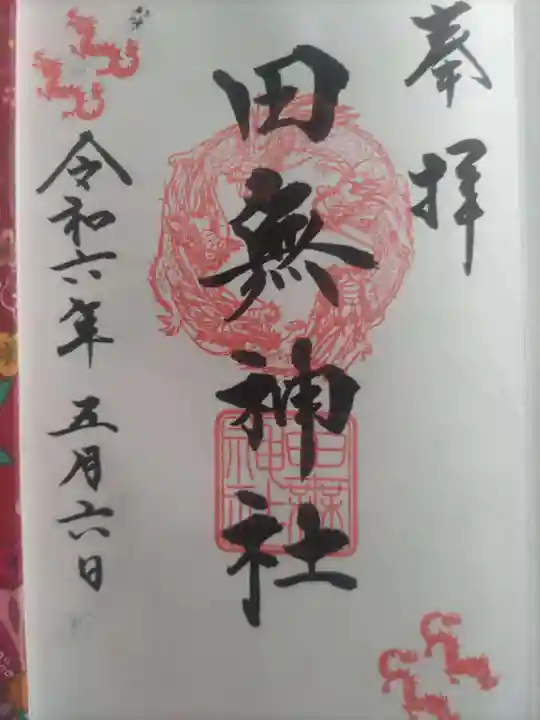 奉拝
田無神社
令和六年五月六日
田無神社